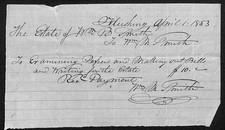 Flushing, April 1. 1853
The Estate of Wm B. Smith
To Wm M. Smith
To Examining Papers and Making out Bills
and Writing for the Estate $10.
Rec. Payment
Wm M. Smith